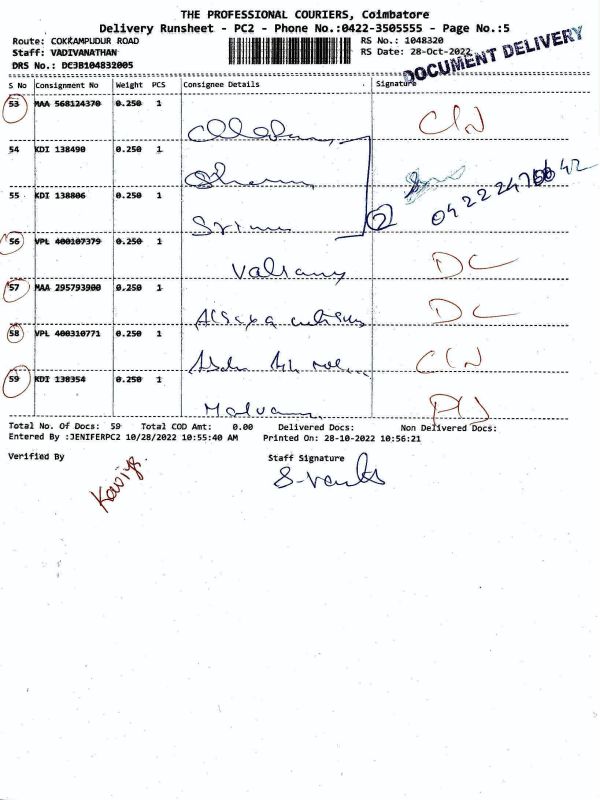 THE PROFESSIONAL COURIERS, Coimbatore
Delivery Runsheet - PC2 - Phone No.:0422-3505555 - Page No.:5
Route: COKKAMPUDUR ROAD
RS No.: 1048320
Staff: VADIVANATHAN
RS Date: 28-Oct-2022
DRS No.: DCJB104832005
DOCUMENT DELIVERY
S No Consignment No Weight PCS Consignee Details Signature
53 MAA 568124370 0.250 1 C/N
54 KDI 138490 0.250 1
55 KDI 138806 0.250 1 2
56 VPL 400107379 0.250 1 DC
57 MAA 295793900 0.250 1 DC
58 VPL 400310771 0.250 1 C/N
59 KDI 138354 0.250 1
Total No. Of Docs: 59 Total COD Amt: 0.00 Delivered Docs: Non Delivered Docs:
Entered By :JENIFERPC2 10/28/2022 10:55:40 AM Printed On: 28-10-2022 10:56:21
Verified By Staff Signature